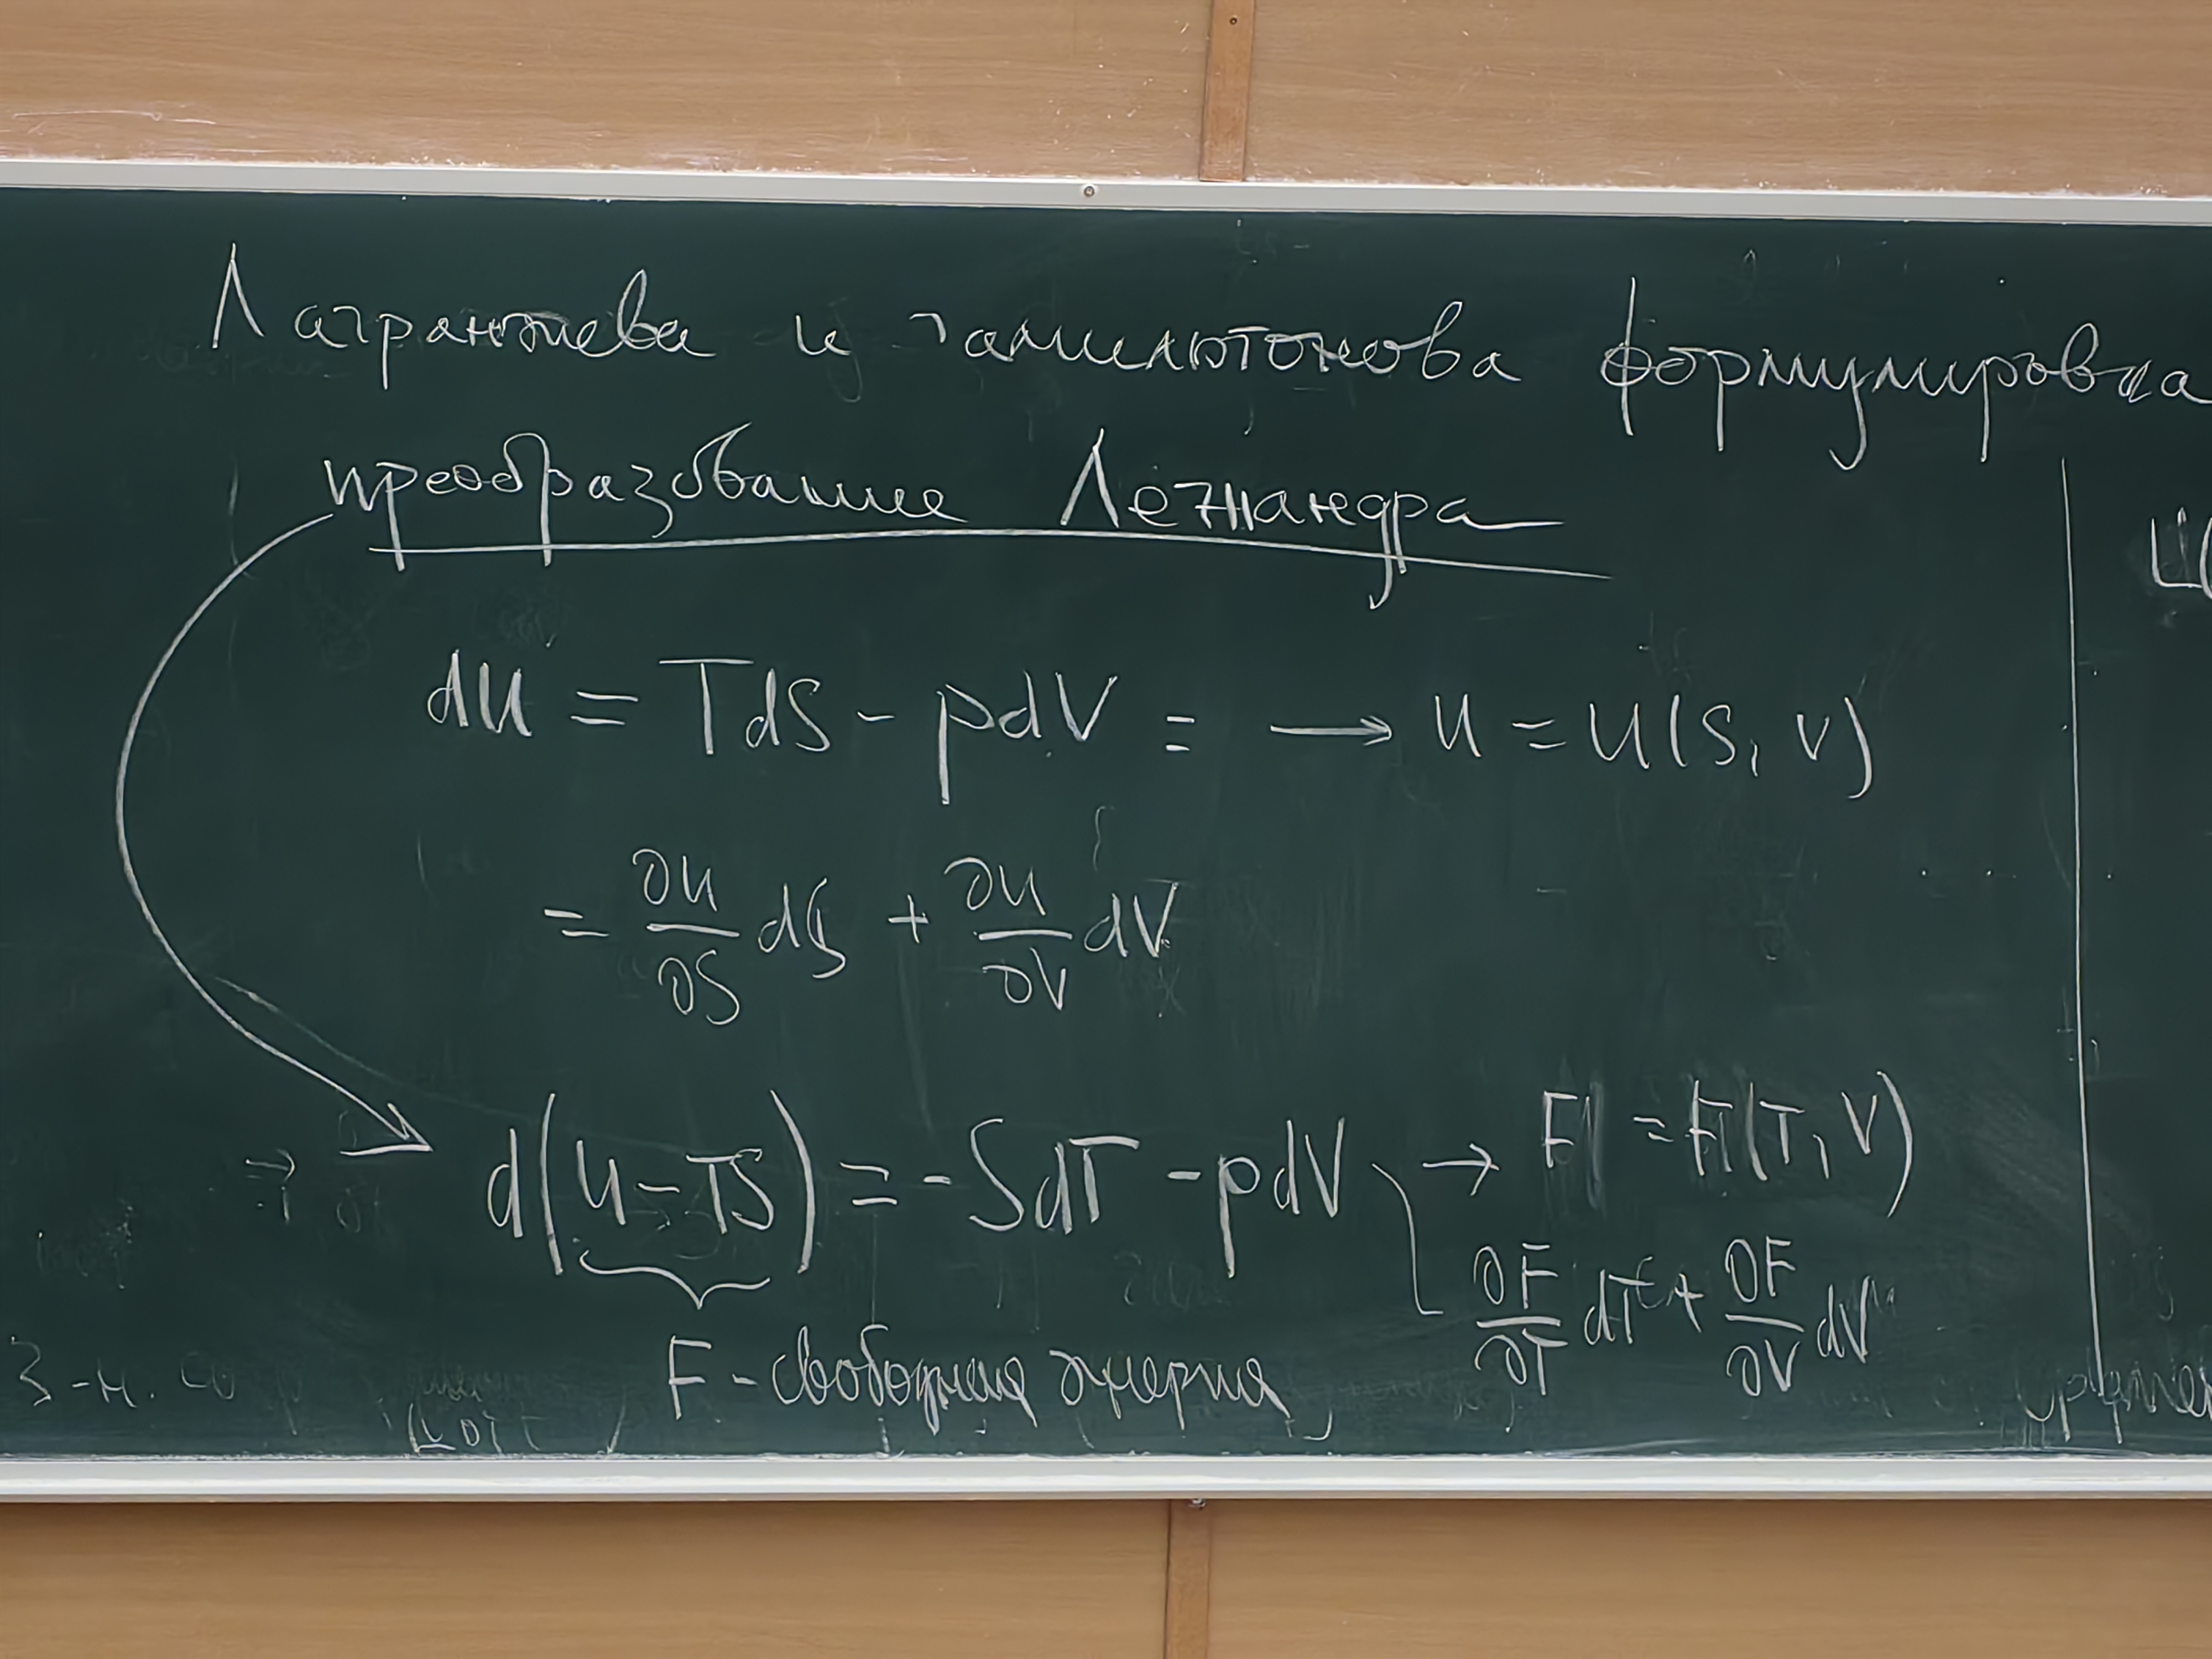 Лагранжева и гамильтонова формулировка
преобразование Лежандра
dU = TdS - pdV = → U = U(S, V)
= ∂U/∂S dS + ∂U/∂V dV
d(U - TS) = -SdT - pdV → F = F(T, V)
∂F/∂T dT + ∂F/∂V dV
F - свободная энергия